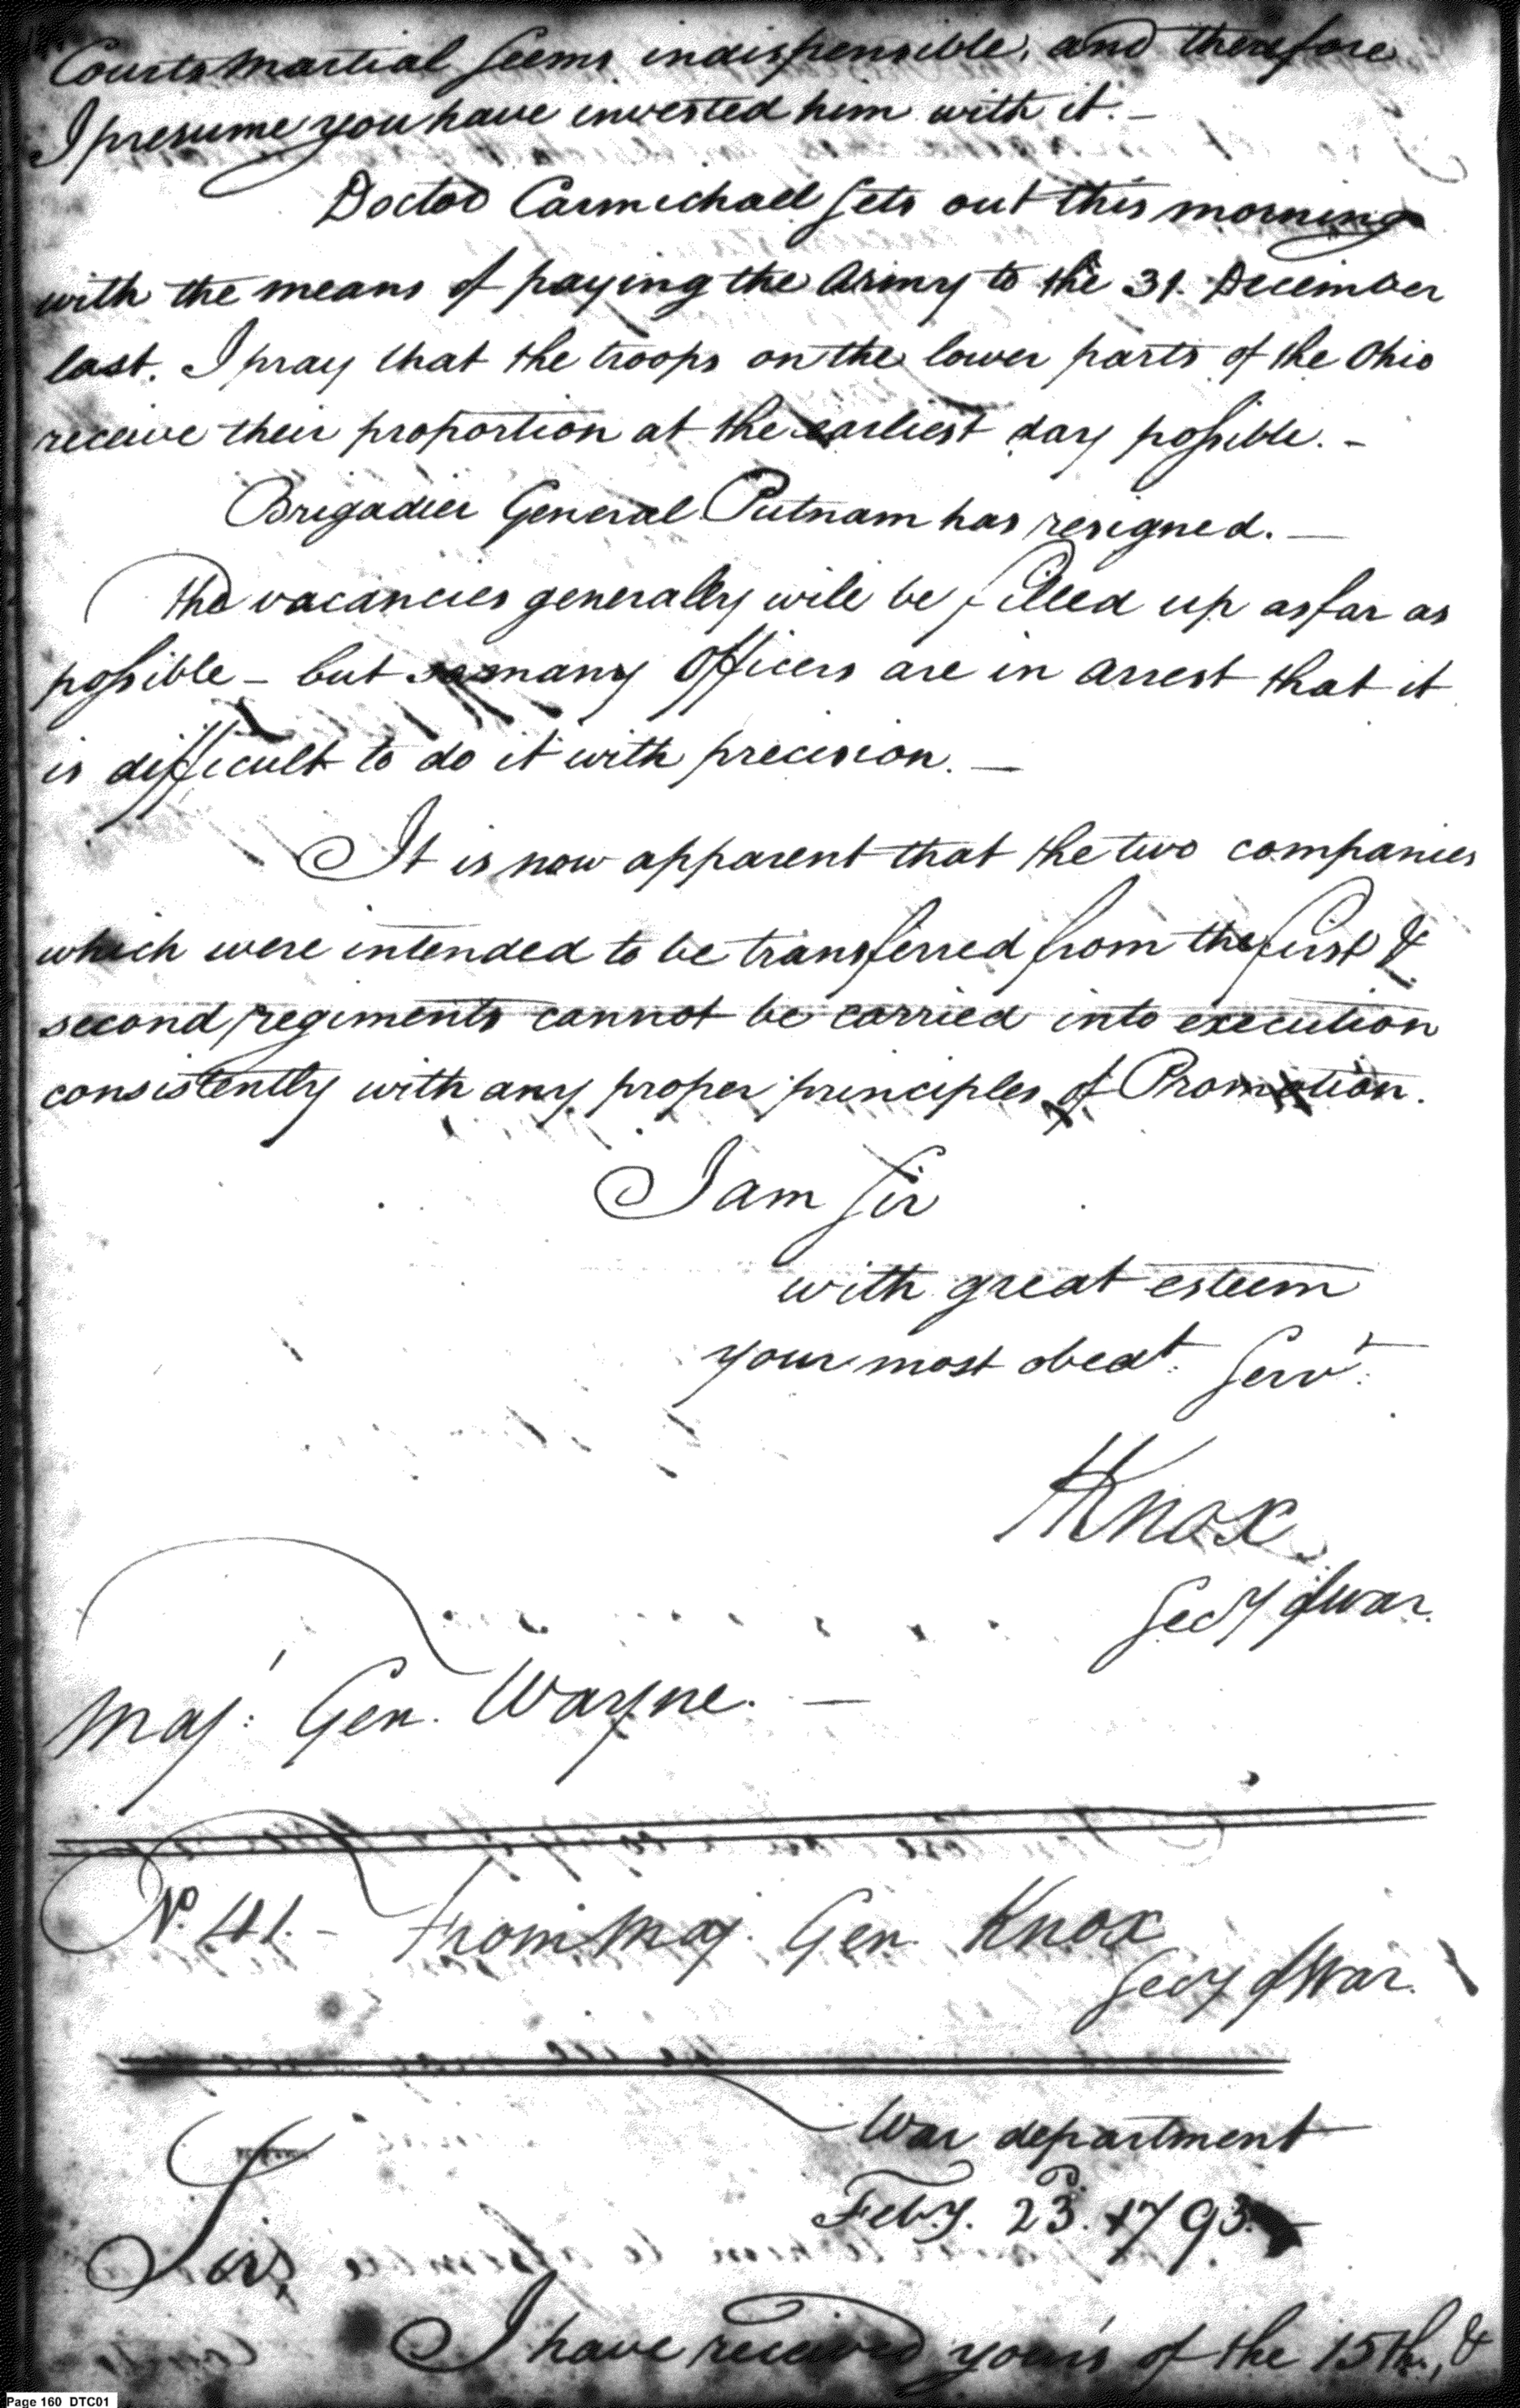 Courts Martial seems indispensible, and therefore
I presume you have invested him with it. –
Doctor Carmichael sets out this morning
with the means of paying the Army to the 31. December
last. I pray that the troops on the lower parts of the Ohio
receive their proportion at the earliest day possible. –
Brigadier General Putnam has resigned. —
The vacancies generally will be filled up as far as
possible – but so many Officers are in arrest that it
is difficult to do it with precision. —
It is now apparent that the two companies
which were intended to be transferred from the first &
second regiments cannot be carried into execution
consistently with any proper principles of Promotion.
I am Sir
with great esteem
your most obedt. Servt.
HKnox
Secy of War.
Maj. Gen. Wayne. —
No. 41. – From Maj. Gen. Knox
Secy of War.
War department
Feby. 23d. 1793. –
Sir,
I have received yours of the 15th, &
Page 160 DTC01